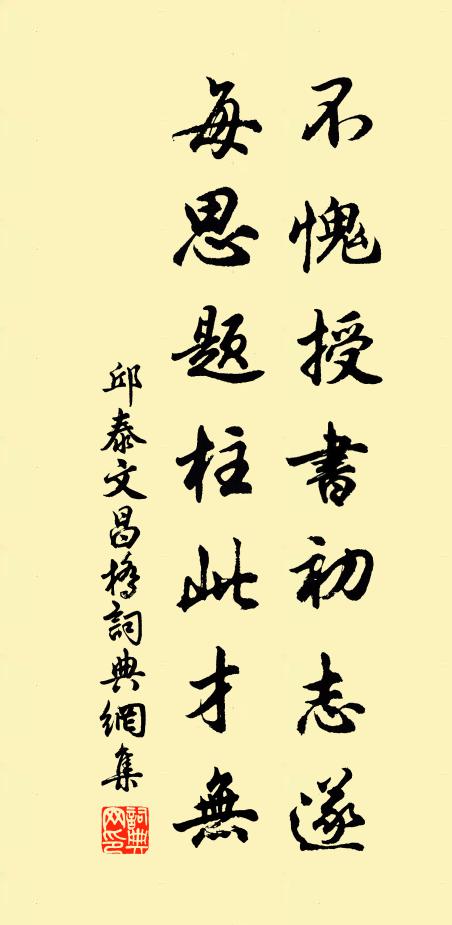 不愧授書初志遂
每思題柱此才無
邱泰文昌橋詞典網集
詞典網印